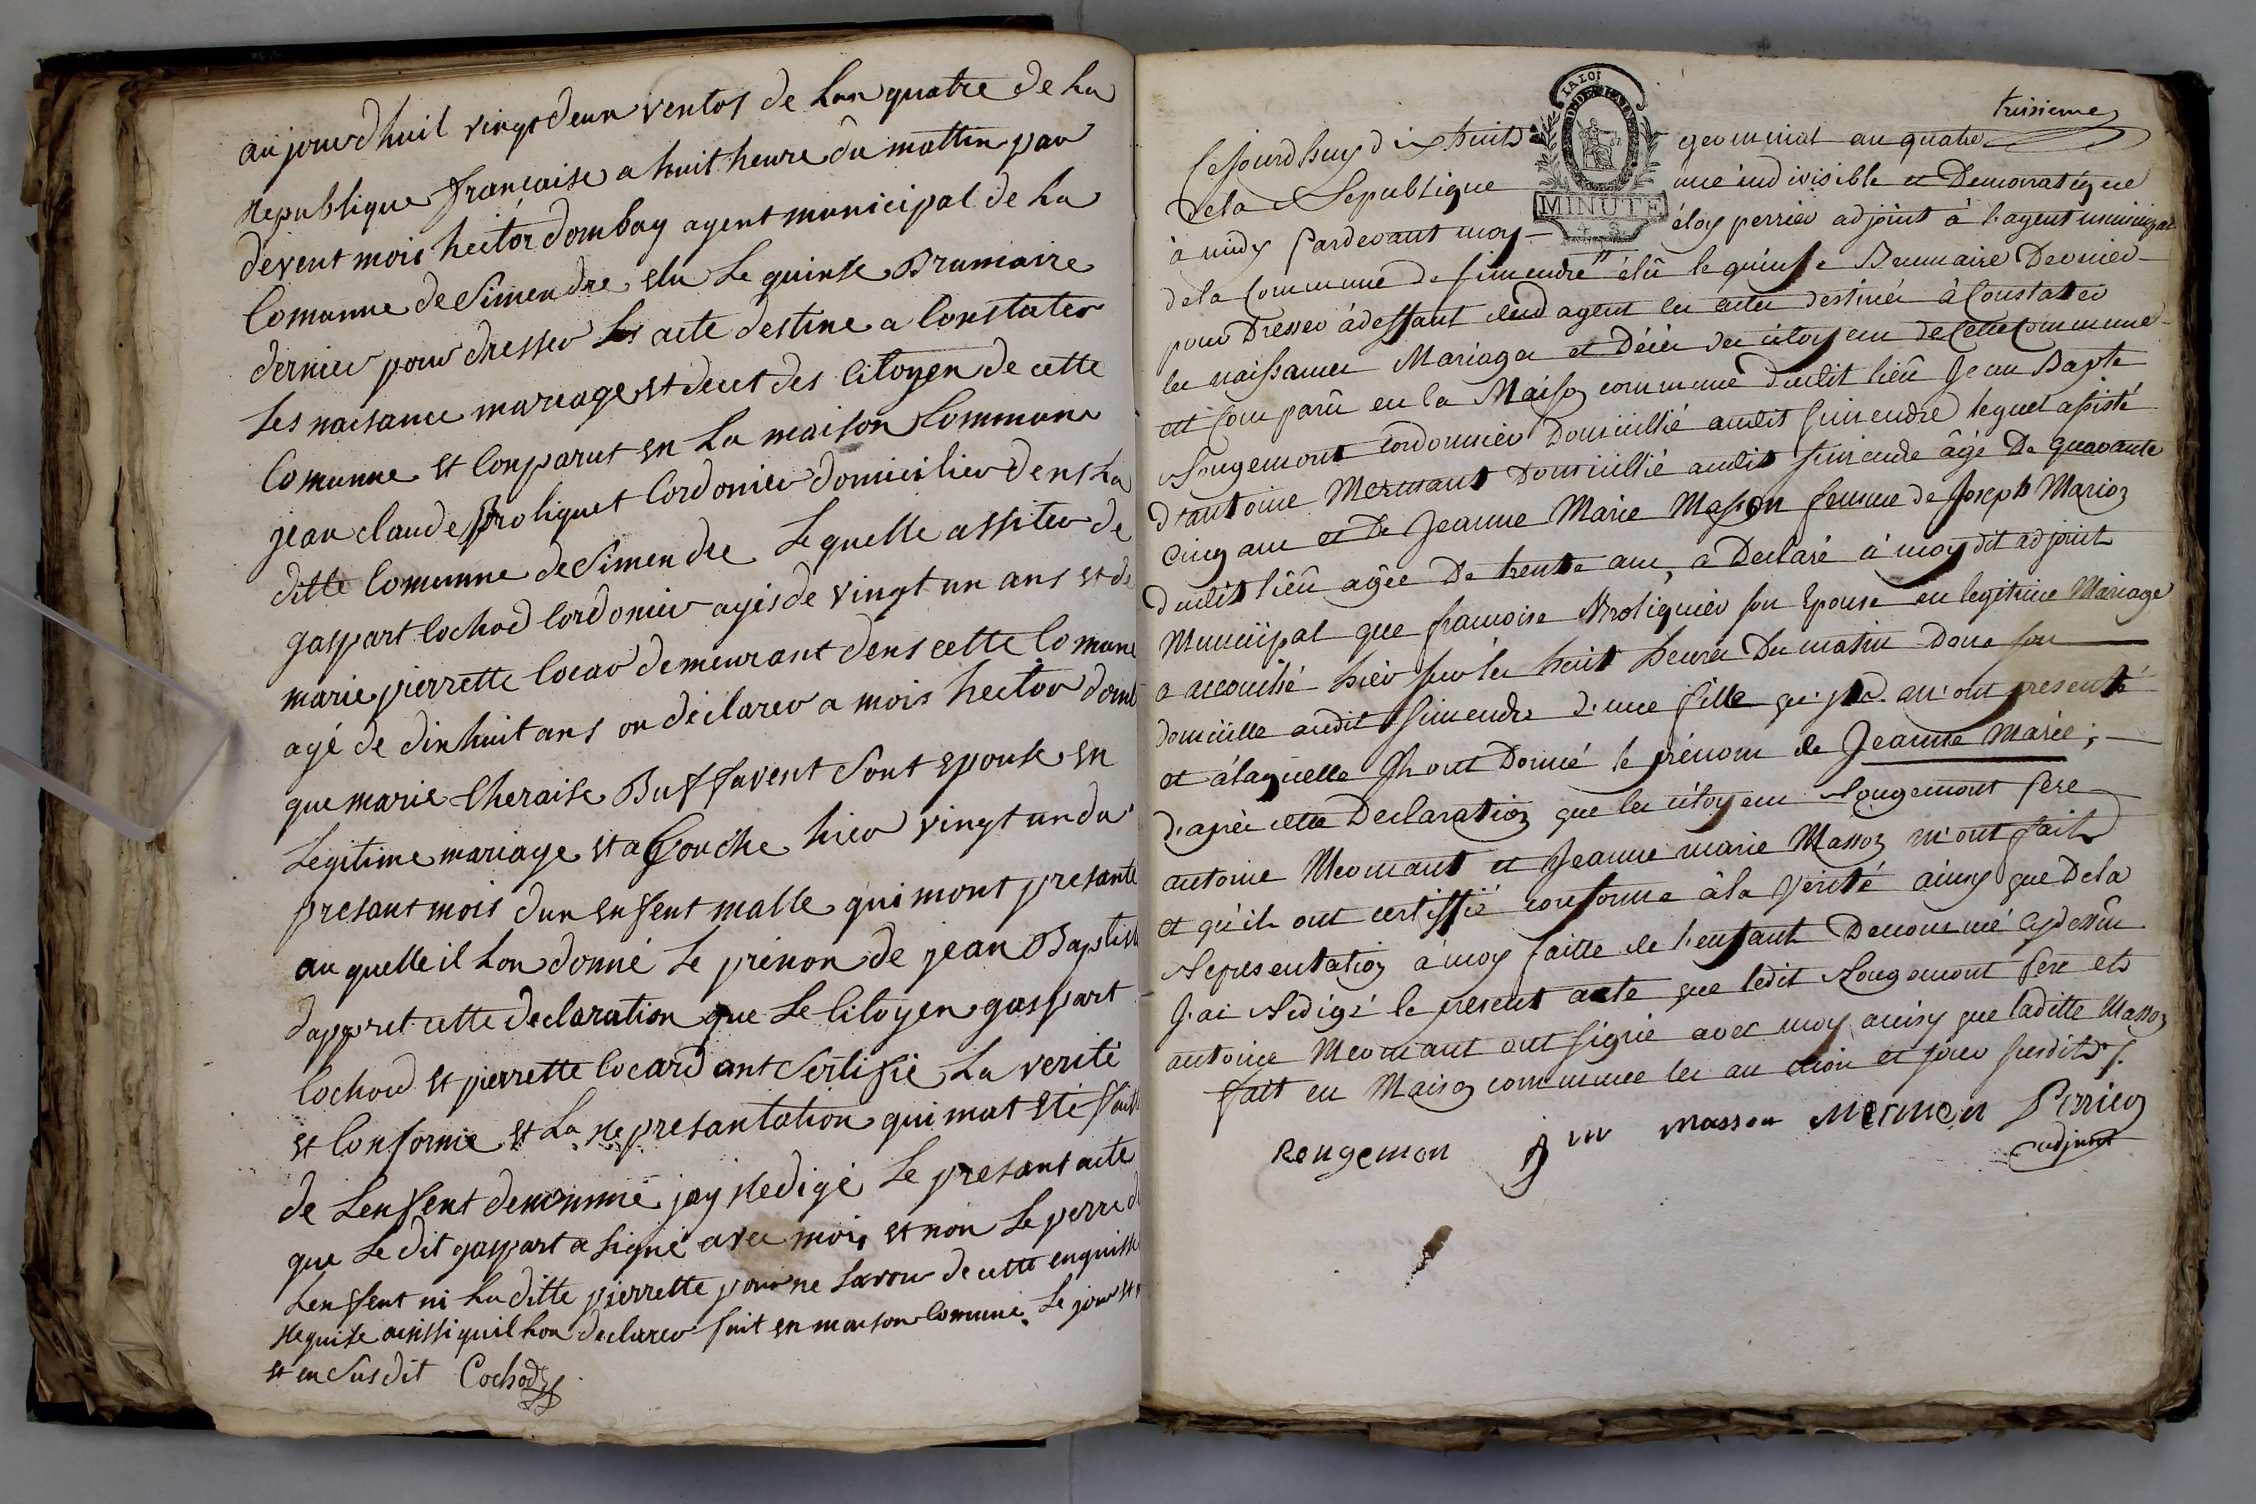 aujourdhuil vingtdeux ventos de Lan quatre de La
Republique française a huit heure du mattin par
devent mois hector dombay agent municipal de La
Comunne de Simendre elu Le quinse Brumaire
dernier pour dresser Les acte destine a Constater
Les naisance mariage et decet des Citoyen de cette
Comunne et Conparut en La maison Commune
jean claude proliquet Cordonier domicilier dens La
ditte Comunne de Simendre Lequelle assiter de
gaspart Cochod Cordonier agés de vingt un ans et de
marie pierrette Cocar demeurant dens cette Comune
agé de dixhuit ans on déclarer a mois hector domb
que marie theraise Buffavent sont epouse en
Legitime mariage et acouche hier vingt un du
presant mois dun enfent malle qui mont presante
au quelle il Lon donné Le prénon de jean Baptist
dappret cette declaration que Le Citoyen gaspart
Cochod et pierrette Cocard ont Sertifié La verité
et Conforme et La Representation qui mat eté faitte
de Lenfent denomme jay Redigé Le presant acte
que Le dit gaspart a signé avec mois et non Le perre d
Lenfent ni La ditte pierrette pour ne Savoir de cette enquisse
Requise ainssi quil Lon declarer fait en maison Comune Le jour et
et en Susdit Cochod
troisieme
LA LOI
MINUTE
Cejourdhuy dixhuits germinal an quatre
De la Republique une indivisible et Democratique
à midy Pardevant moy éloy perrier adjoint à l'agent municipal
de la Commune de simendre élû le quinse Brumaire Dernier
pour Dresser à deffaut dud agent les actes destinés à Constater
les naissances Mariages et Décés des citoyens de Cette Commune
est comparû en la Maison commune dudit liéu Jean Bapte
Rougemont Cordonnier Domicillié audit simendre lequel assisté
d'antoine Mermant Domicillié audit simendre âgé De quarante
Cinq ans et De Jeanne Marie Masson femme de Joseph Marion
dudit liéu agée De trente ans, a Declaré à moy dit adjoint
Municipal que francoise Proliquier son Epouse en legitime Mariage
a accouchée hier sur les huit heures Du matin Dans son
domicille audit simendre d'une fille qu'ils m'ont presenté
et à laquelle Ils ont Donné le prénom de Jeanne Marie;
d'aprés cette Declaration que les citoyens Rougemont Pere
antoine Mermant et Jeanne marie Masson m'ont fait
et qu'ils ont certiffié conforme à la Verité ainsy que De la
Representation à moy faitte de l'enfant Denommé Cy dessûs
J'ai Redigé le present acte que ledit Rougemont Pere et
antoine Mermant ont signé avec moy ainsy que laditte Masson
fait en Maison commune les an mois et jour susdits
Rougemon jm masson Mermen Perrier
adjoint